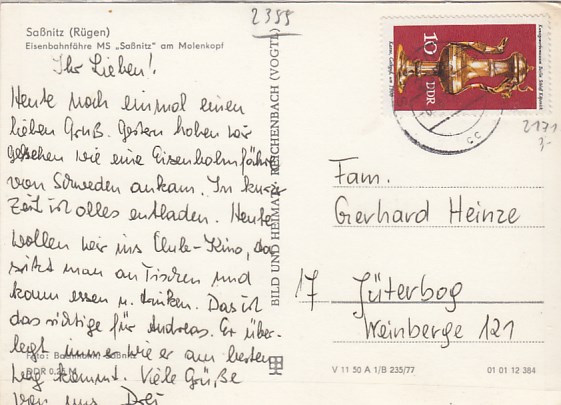 2355
Saßnitz (Rügen)
Eisenbahnfähre MS „Saßnitz" am Molenkopf
Ihr Lieben!
Heute noch einmal einen
lieben Gruß. Gestern haben wir
gesehen wie eine Eisenbahnfähre
von Schweden ankam. In kurzer
Zeit ist alles entladen. Heute
wollen wir ins Kino, da
sitzt man an Tischen und
kann essen u. trinken. Das ist
das richtige für Andreas. Er über-
legt immer wie er am besten
weg kommt. Viele Grüße
von uns Drei
Saßnitz
DDR
BILD UND HEIMAT REICHENBACH (VOGTL)
10
DDR
2171
3,-
Fam.
Gerhard Heinze
17 Jüterbog
Weinberge 121
V 11 50 A 1/B 235/77
01 01 12 384